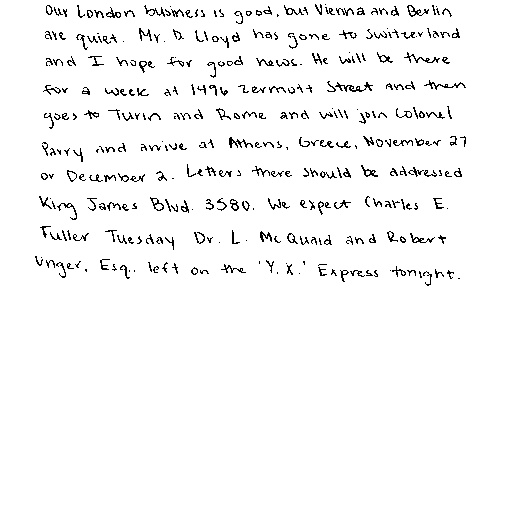 Our London business is good, but Vienna and Berlin
are quiet. Mr. D. Lloyd has gone to Switzerland
and I hope for good news. He will be there
for a week at 1496 Zermott Street and then
goes to Turin and Rome and will join Colonel
Parry and arrive at Athens, Greece, November 27
or December 2. Letters there should be addressed
King James Blvd. 3580. We expect Charles E.
Fuller Tuesday Dr. L. McQuaid and Robert
Unger, Esq., left on the 'Y.X.' Express tonight.